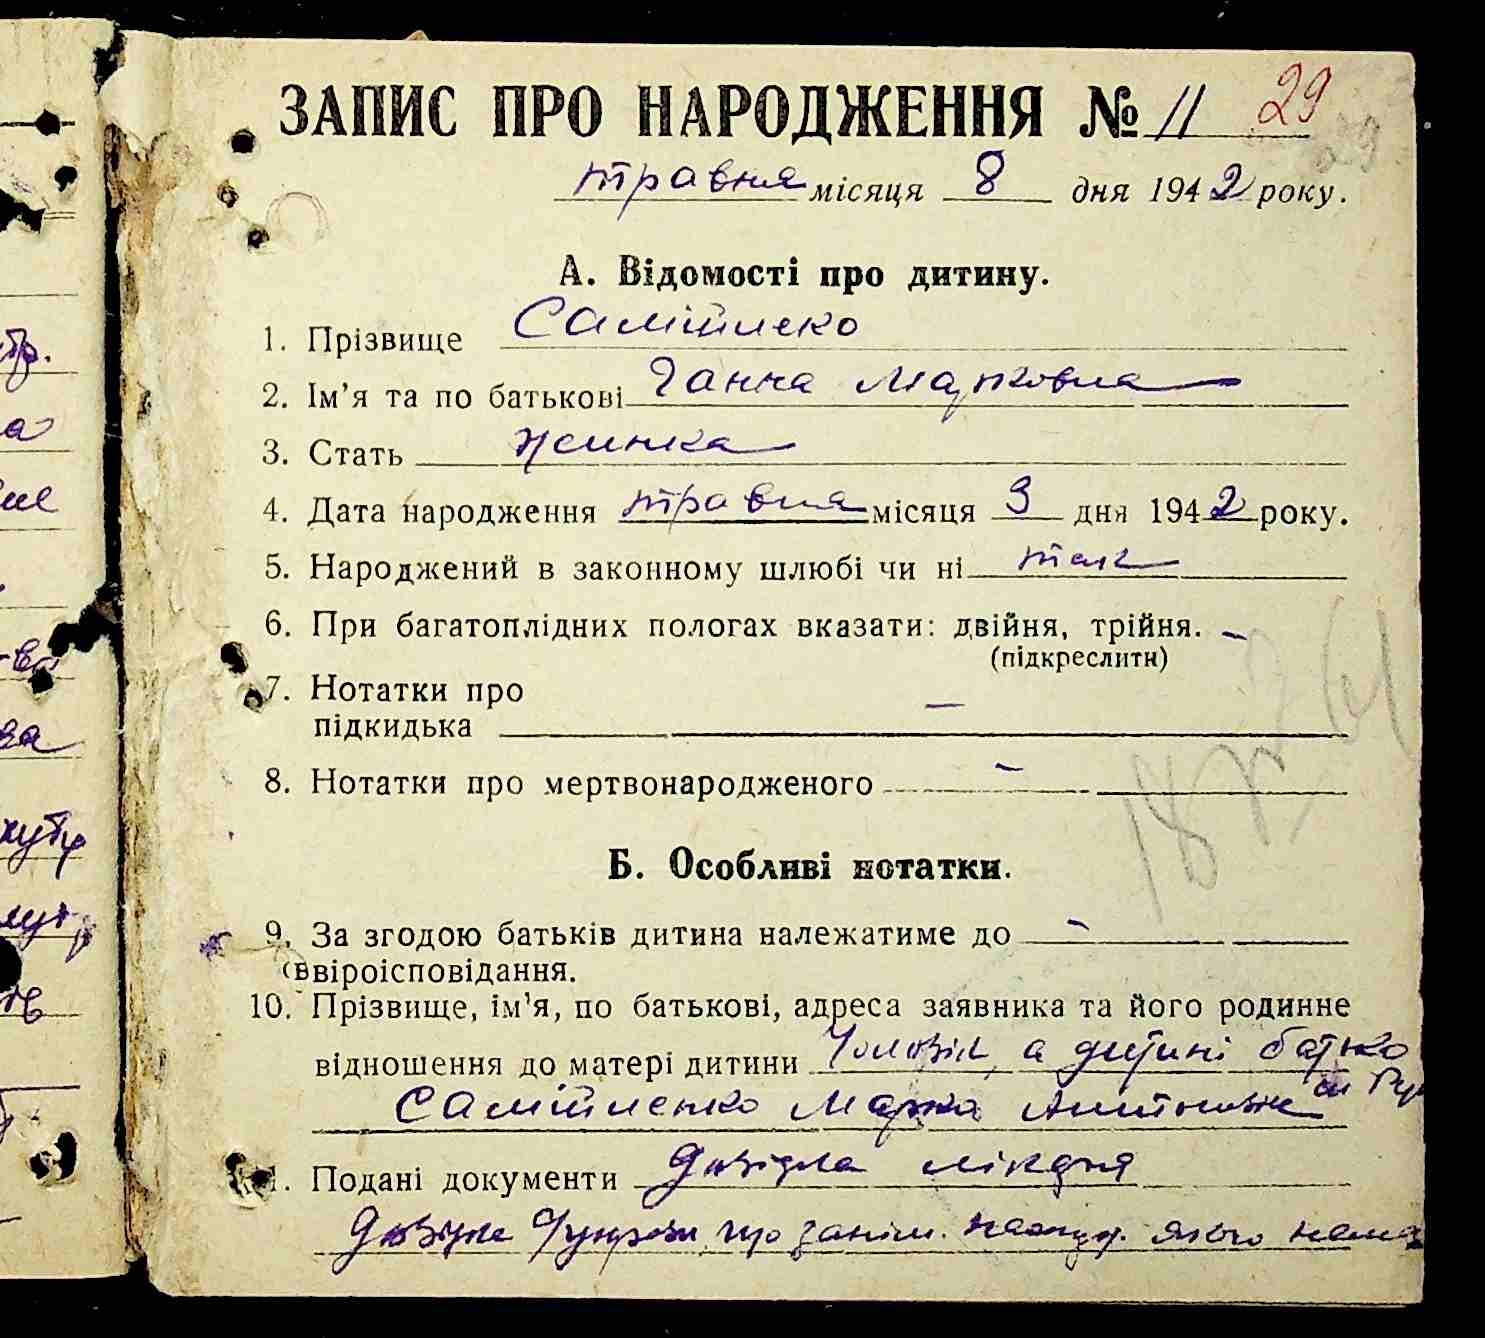 ЗАПИС ПРО НАРОДЖЕННЯ № 11 29
травня місяця 8 дня 1942 року.
А. Відомості про дитину.
1. Прізвище Самійленко
2. Ім'я та по батькові Ганна Марковна
3. Стать жинка
4. Дата народження травня місяця 3 дня 1942 року.
5. Народжений в законному шлюбі чи ні так
6. При багатоплідних пологах вказати: двійня, трійня. –
(підкреслити)
7. Нотатки про
підкидька –
8. Нотатки про мертвонародженого –
Б. Особливі нотатки.
9. За згодою батьків дитина належатиме до –
віроісповідання.
10. Прізвище, ім'я, по батькові, адреса заявника та його родинне
відношення до матері дитини Чоловік, а дитині батько
Самійленко Марко
11. Подані документи Довідка лікаря
Довідка що